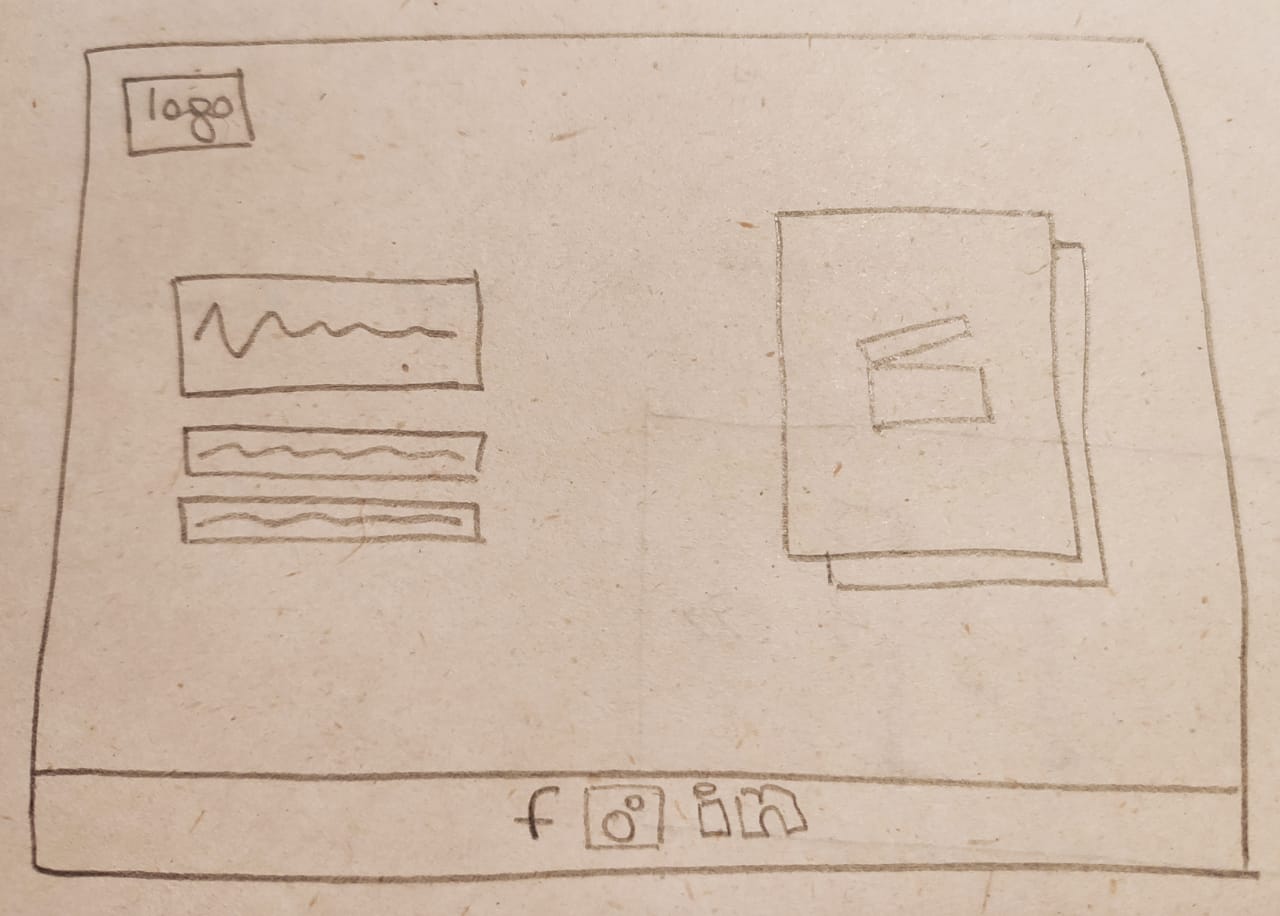 logo
f
in